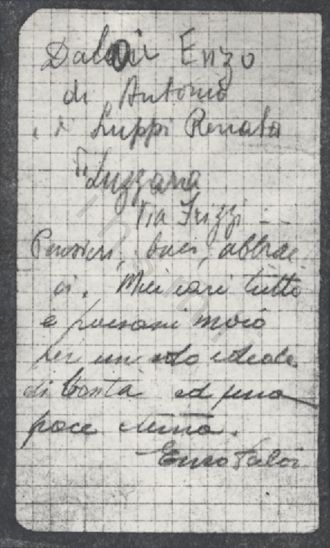 Daloi Enzo
di Antonio
Luppi Renata
Luzzara
Via Frizzi
Pensieri, baci, abbrac
ci. Miei cari tutti
e paesani moio
per un solo ideale
di bontà ed una
pace eterna.
Enzo Daloi